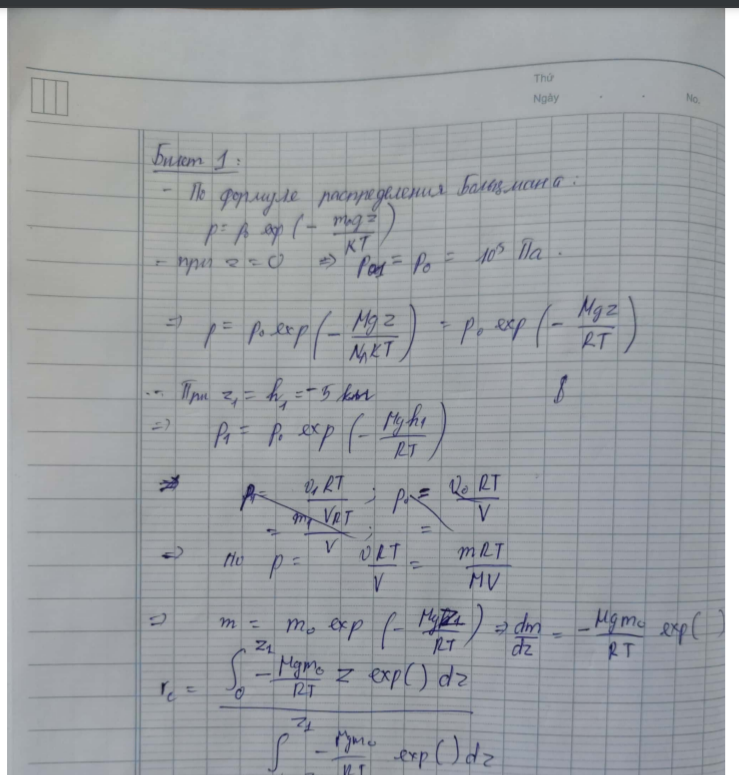 Thứ
Ngày . . No.
Билет 1:
- По формуле распределения Больцмана:
p = p₀ exp(- m₀gz/KT)
- при z = 0 ⇒ p₀₁ = p₀ = 10⁵ Па.
⇒ p = p₀ exp(- Mgz/N_A KT) = p₀ exp(- Mgz/RT)
- При z₁ = h₁ = -5 км
⇒ p₁ = p₀ exp(- Mgh₁/RT)
p₁ = υ₁RT/V ; p₀ = υ₀RT/V
= m₁RT/V ; =
⇒ Но p = υRT/V = mRT/MV
⇒ m = m₀ exp(- Mgz₁/RT) ⇒ dm/dz = - Mgm₀/RT exp( )
r_c = ∫₀^z₁ - Mgm₀/RT z exp() dz
∫ z₁ - Mgm₀/RT exp() dz